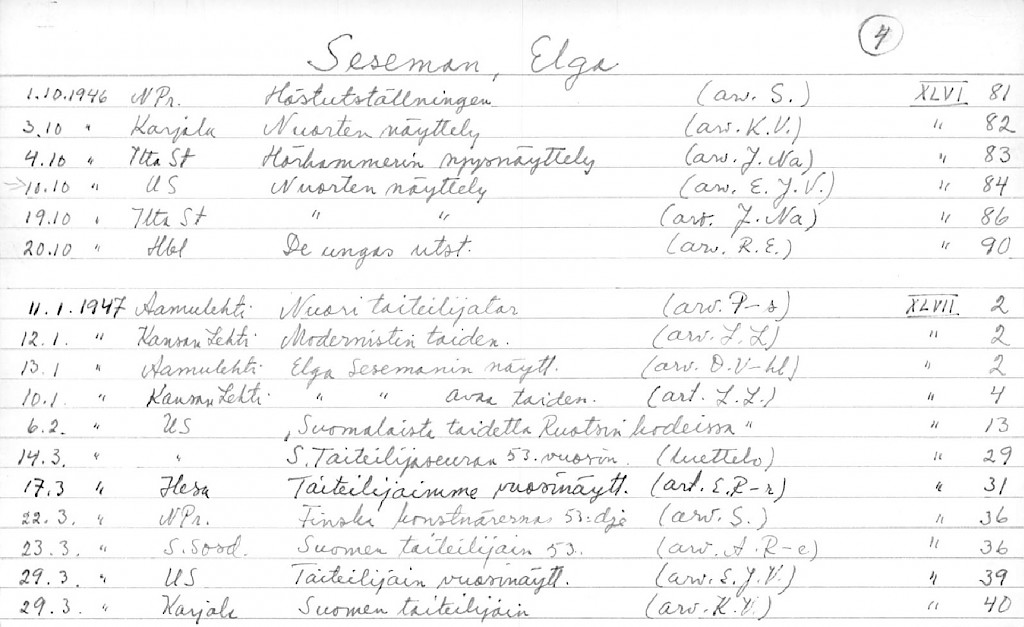 4
Seseman, Elga
1.10.1946 NPr. Höstutställningen (arv. S.) XLVI 81
3.10 " Karjala Nuorten näyttely (arv. K.V.) " 82
4.10 " Ilta St Hörhammerin syysnäyttely (arv. J. Na) " 83
10.10 " US Nuorten näyttely (arv. E.J.V.) " 84
19.10 " Ilta St " " (arv. J. Na) " 86
20.10 " Hbl De ungas utst. (arv. R.E.) " 90
11.1.1947 Aamulehti Nuori taiteilijatar (arv. P-s) XLVII 2
12.1. " Kansan Lehti Modernistin taiden. (arv. L.L) " 2
13.1 " Aamulehti Elga Sesemanin näytt. (arv. O.V-hl) " 2
10.1. " Kansan Lehti " " avaa taiden. (art. L.L.) " 4
6.2. " US "Suomalaista taidetta Ruotsin kodeissa" " 13
14.3. " " S. Taiteilijaseuran 53. vuosin. (luettelo) " 29
17.3 " Hesa Taiteilijaimme vuosinäytt. (art. E.R-r) " 31
22.3. " NPr. Finska konstnärernas 53:dje (arv. S.) " 36
23.3. " S. Sosd. Suomen taiteilijain 53. (arv. A.R-e) " 36
29.3. " US Taiteilijain vuosinäytt. (arv. E.J.V.) " 39
29.3. " Karjala Suomen taiteilijain (arv. K.V.) " 40